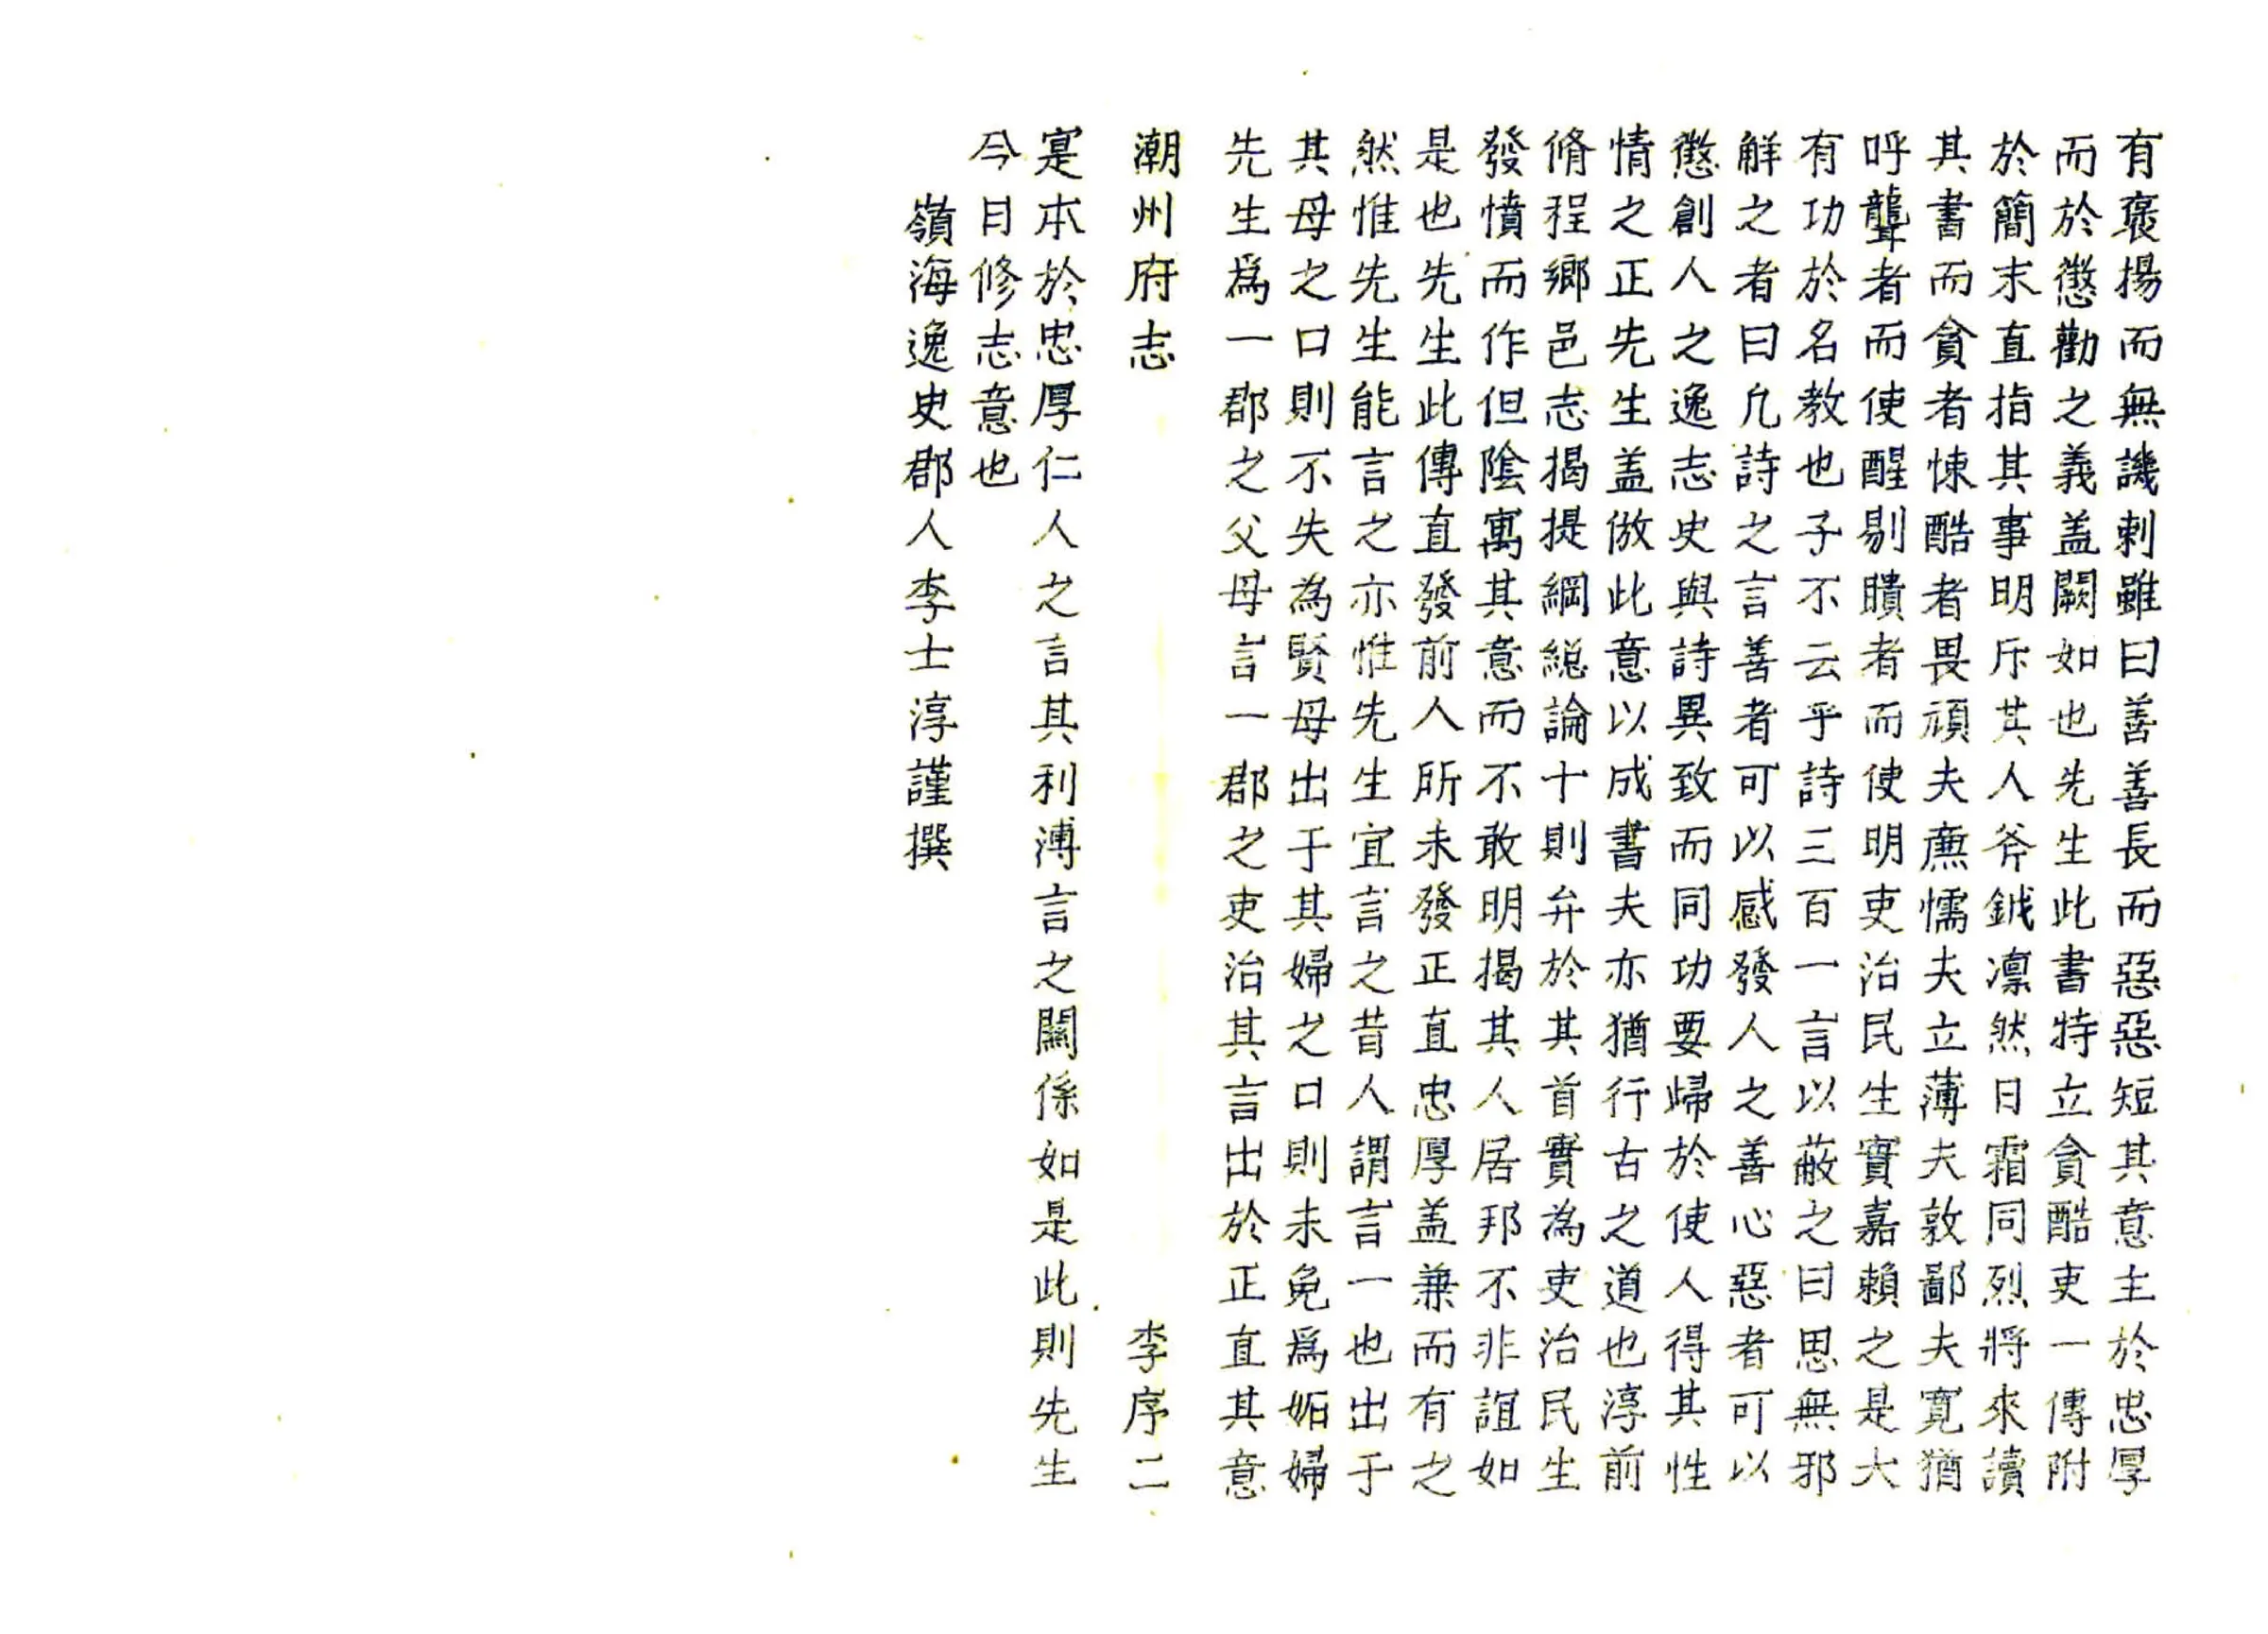 有褒揚而無譏刺雖曰善善長而惡惡短其意主於忠厚
而於懲勸之義盖闕如也先生此書特立貪酷吏一傳附
於簡末直指其事明斥其人斧鉞凛然日霜同烈將來讀
其書而貪者悚酷者畏頑夫廉懦夫立薄夫敦鄙夫寛猶
呼聾者而使醒剔瞶者而使明吏治民生實嘉賴之是大
有功於名教也子不云乎詩三百一言以蔽之曰思無邪
解之者曰凡詩之言善者可以感發人之善心惡者可以
懲創人之逸志史與詩異致而同功要歸於使人得其性
情之正先生盖倣此意以成書夫亦猶行古之道也淳前
脩程鄉邑志揭提綱総論十則弁於其首實為吏治民生
發憤而作但陰寓其意而不敢明揭其人居邦不非誼如
是也先生此傳直發前人所未發正直忠厚盖兼而有之
然惟先生能言之亦惟先生宜言之昔人謂言一也出于
其母之口則不失為賢母出于其婦之口則未免爲妬婦
先生爲一郡之父母言一郡之吏治其言出於正直其意
潮州府志 李序二
寔本於忠厚仁人之言其利溥言之關係如是此則先生
今日修志意也
嶺海逸史郡人李士淳謹撰